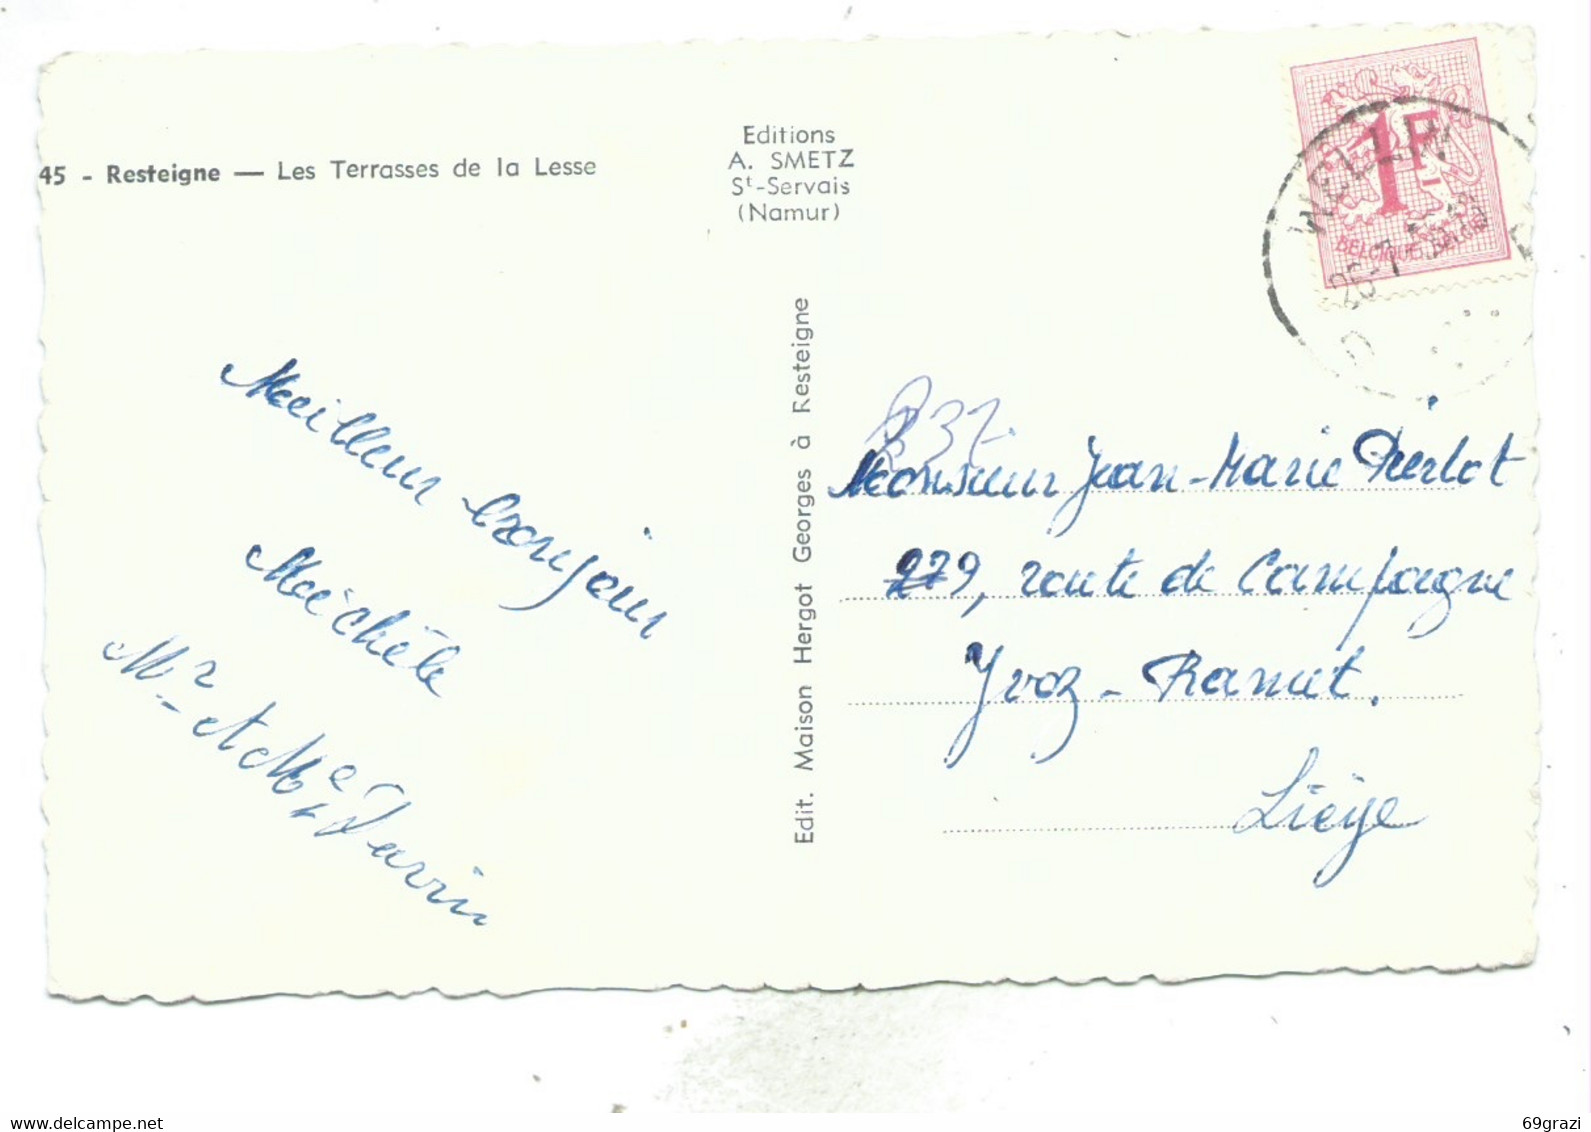 45 - Resteigne — Les Terrasses de la Lesse
Editions
A. SMETZ
St-Servais
(Namur)
1F
BELGIQUE-BELGIE
WELLIN
Edit. Maison Hergot Georges à Resteigne
Meilleur bonjour
Michèle
Mr et Me Darvin
Monsieur Jean-Marie Pierlot
279, route de Campagne
Yvoz-Ramet.
Liège
69grazi